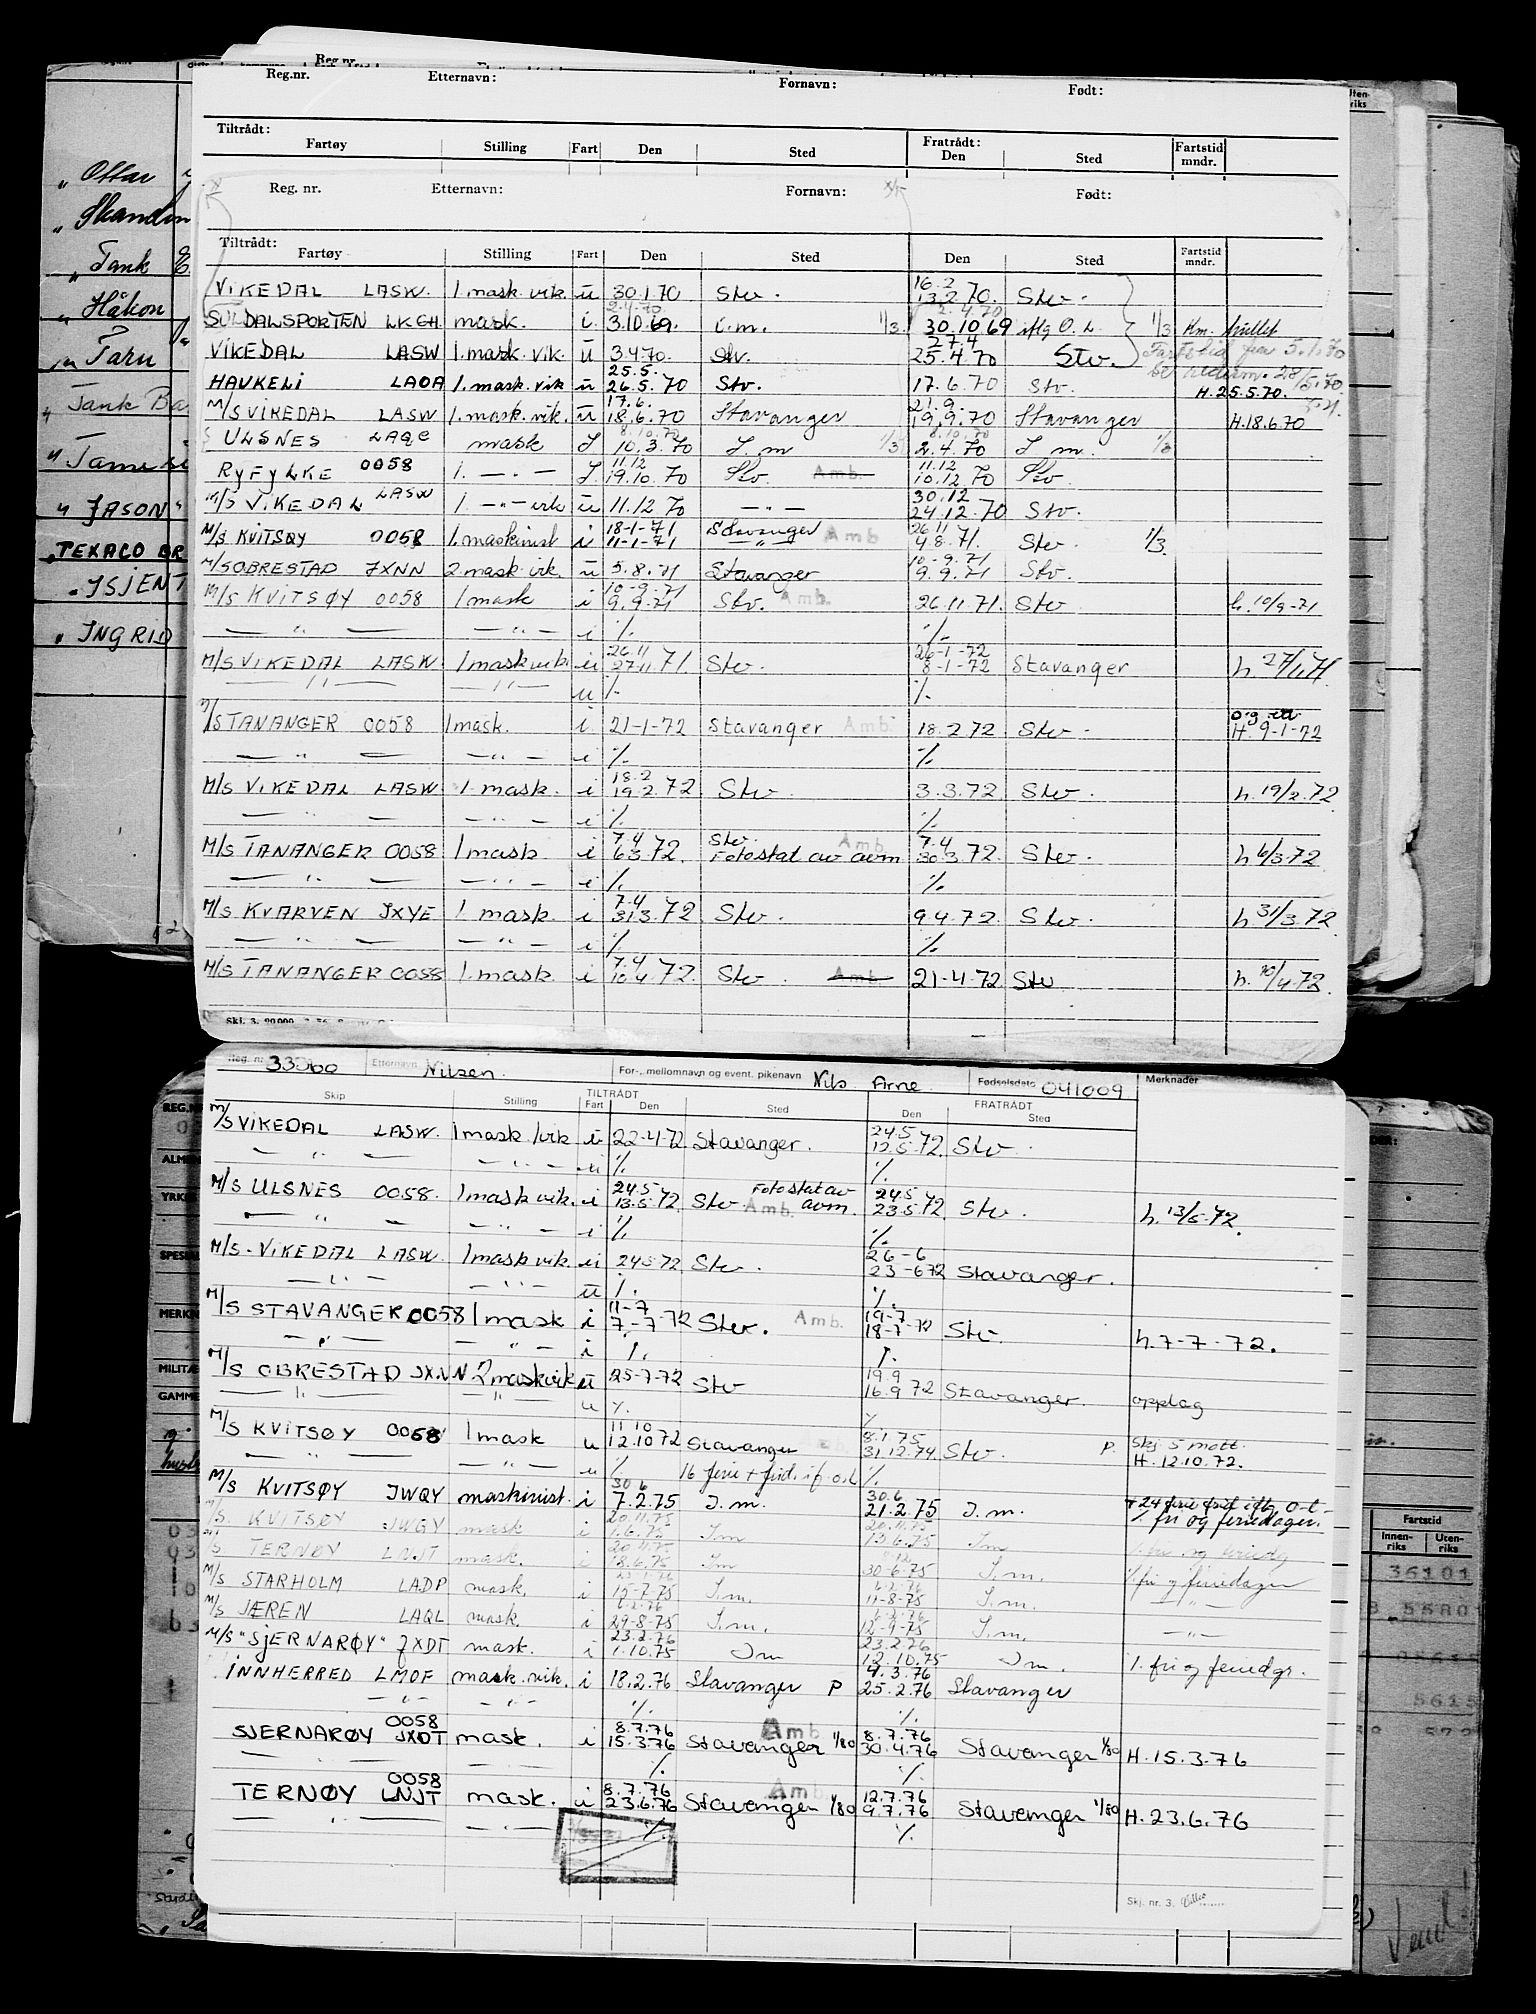 Reg.nr. Etternavn: Fornavn: Født:
Tiltrådt: Fratrådt:
Fartøy Stilling Fart Den Sted Den Sted Fartstid mndr.
Reg. nr. Etternavn: Fornavn: Født:
Tiltrådt:
Fartøy Stilling Fart Den Sted Den Sted Fartstid mndr.
" Ottar
" Skandin
" Tank E
" Håkon
" Taru
" Tank Ba
" JASON"
" TEXACO BR
" JSJENT
" INGRID
VIKEDAL LASW. 1 mask. vik ü 30.1.70 Stv. 16.2 13.2.70. Stv.
SULDALSPORTEN LKGH mask. i. 2.4.70 3.10.69. i.m. 1/3 2.4.70 30.10.69 iflg O.L. 1/3 Km. hullet
VIKEDAL LASW 1. mask. vik. ü 3.4.70. Stv. 27.4 25.4.70 Stv. Fartstid fra 5.1.70
HAUKELI LAOA 1. mask. vik ü 25.5. 26.5.70 Stv. 17.6.70 Stv. H.25.5.70.
M/S VIKEDAL LASW 1. mask. vik. ü 17.6. 18.6.70 Stavanger 21.9. 19.9.70 Stavanger H.18.6.70
ULSNES LAQC mask J 8.10.70 10.3.70 J.m 1/3 8.10.70 2.4.70 J m. 1/3
RYFYLKE 0058 1. — " — J. 11.12 19.10.70 Stv Amb. 11.12 10.12.70 Stv
M/S VIKEDAL LASW 1. — " — vik ü 11.12.70 — " — 30.12 24.12.70 Stv.
M/S KVITSØY 0058 1. maskinist i 18-1-71 11-1-71 Stavanger Amb 26.11 4.8.71. Stv. 1/3.
M/S OBRESTAD JXNN 2. mask. vik. ü 5.8.71 Stavanger 10.-9.71 9.9.71 Stv.
M/S KVITSØY 0058 1 mask i 10-9-71 9.9.71 Stv. Amb. 26.11.71. Stv h. 10/9-71
— " — — " — i %. %.
M/S VIKEDAL LASW. 1 mask vik. ü 26.11 27.11.71. Stv. 26-1-72 8-1-72 Stavanger h. 27/11.71.
— " — — " — u %. %.
M/S TANANGER 0058 1 mask. i 21-1-72 Stavanger Amb. 18.2.72 Stv. H. 9-1-72
— " — — " — i %. %.
M/S VIKEDAL LASW 1. mask. i 18.2 19.2.72 Stv. 3.3.72 Stv. h. 19/2.72
— " — — " — i %. %.
M/S TANANGER 0058 1 mask i 7.4 6.3.72. Stv. Amb. Fotostat av avm 7.4 30.3.72. Stv. h 6/3.72
— " — — " — i %. %.
M/S KVARVEN JXYE 1 mask. i 7.4 31.3.72 Stv. 9.4.72. Stv. h 31/3.72.
— " — — " — i %. %.
M/S TANANGER 0058 1. mask. i 7.4 10.4.72. Stv. Amb 21-4-72 Stv h. 10/4.72.
Reg. nr. Etternavn Nilsen. For-, mellomnavn og event. pikenavn Nils Arne Fødselsdato 041009 Merknader
TILTRÅDT FRATRÅDT
Skip Stilling Fart Den Sted Den Sted
M/S VIKEDAL LASW. 1 mask/vik ü 22-4-72 Stavanger. 24.5 12.5.72. Stv.
— " — — " — u %. %.
M/S ULSNES 0058. 1 mask vik. i 24.5 13.5.72 Stv Amb. Fotostat av avm. 24.5 23.5.72. Stv. h. 13/5.72.
— " — — " — i %. %.
M/S. VIKEDAL LASW. 1 mask vik. ü 24.5.72 Stv. 26-6 23-6.72 Stavanger.
— " — — " — ü %. %.
M/S STAVANGER 0058 1 mask i 11-7 7.-7-72 Stv. Amb. 19-7 18-7-72 Stv. h. 7-7-72.
— " — — " — i %. %.
M/S OBRESTAD JXNN 2 mask vik ü 25-7-72 Stv 19.9 16.9.72 Stavanger. opplag
— " — — " — u %. %
M/S KVITSØY 0058 1 mask u 11.10 12.10.72 Stavanger 8.1.75 31.12.74 Stv. P. Skj 5 mott. H. 12.10.72.
— " — — " — u %. 16 ferie + frid. if. o.L %.
M/S KVITSØY JWQY maskinist. i 30.6 7.2.75 J.m. 30.6 21.2.75 J.m. + 24 ferie frid iflg O-L- %. fri og feriedager.
M/S. KVITSØY JWGY mask i 20.11.75 1.6.75 Jm 20.11.75 Jm
M/S TERNØY LNJT mask. i 20.11.75 18.6.75 Jm 30-6.75 J.m.
M/S STARHOLM LADP mask. i 15-7-75 J.m. 11-8-75 J.m. %fri og feriedager
M/S JÆREN LAQL mask. i 6.2.76 29-8-75 J.m. 6.2.76 12-9-75 J.m. — " —
M/S "SJERNARØY" JXDT mask. i 23.2.76 1.10.75 Jm 23.2.76 12.10.75 Jm. %. fri og feriedgr.
INNHERRED LMOF mask. vik. i 18.2.76 Stavanger P 4.3.76 25.2.76 Stavanger
— " — — " — %. %.
SJERNARØY 0058 JXDT mask. i 8.7.76 15.3.76 Amb Stavanger 1/80 8.7.76 30.4.76 Stavanger 1/80 H.15.3.76
— " — — " — %. %.
TERNØY 0058 LNJT mask. u 8.7.76 23.6.76 Amb Stavanger 1/80 12.7.76 9.7.76 Stavanger 1/80 H.23.6.76
— " — — " — %. %.
Skj. nr. 3.